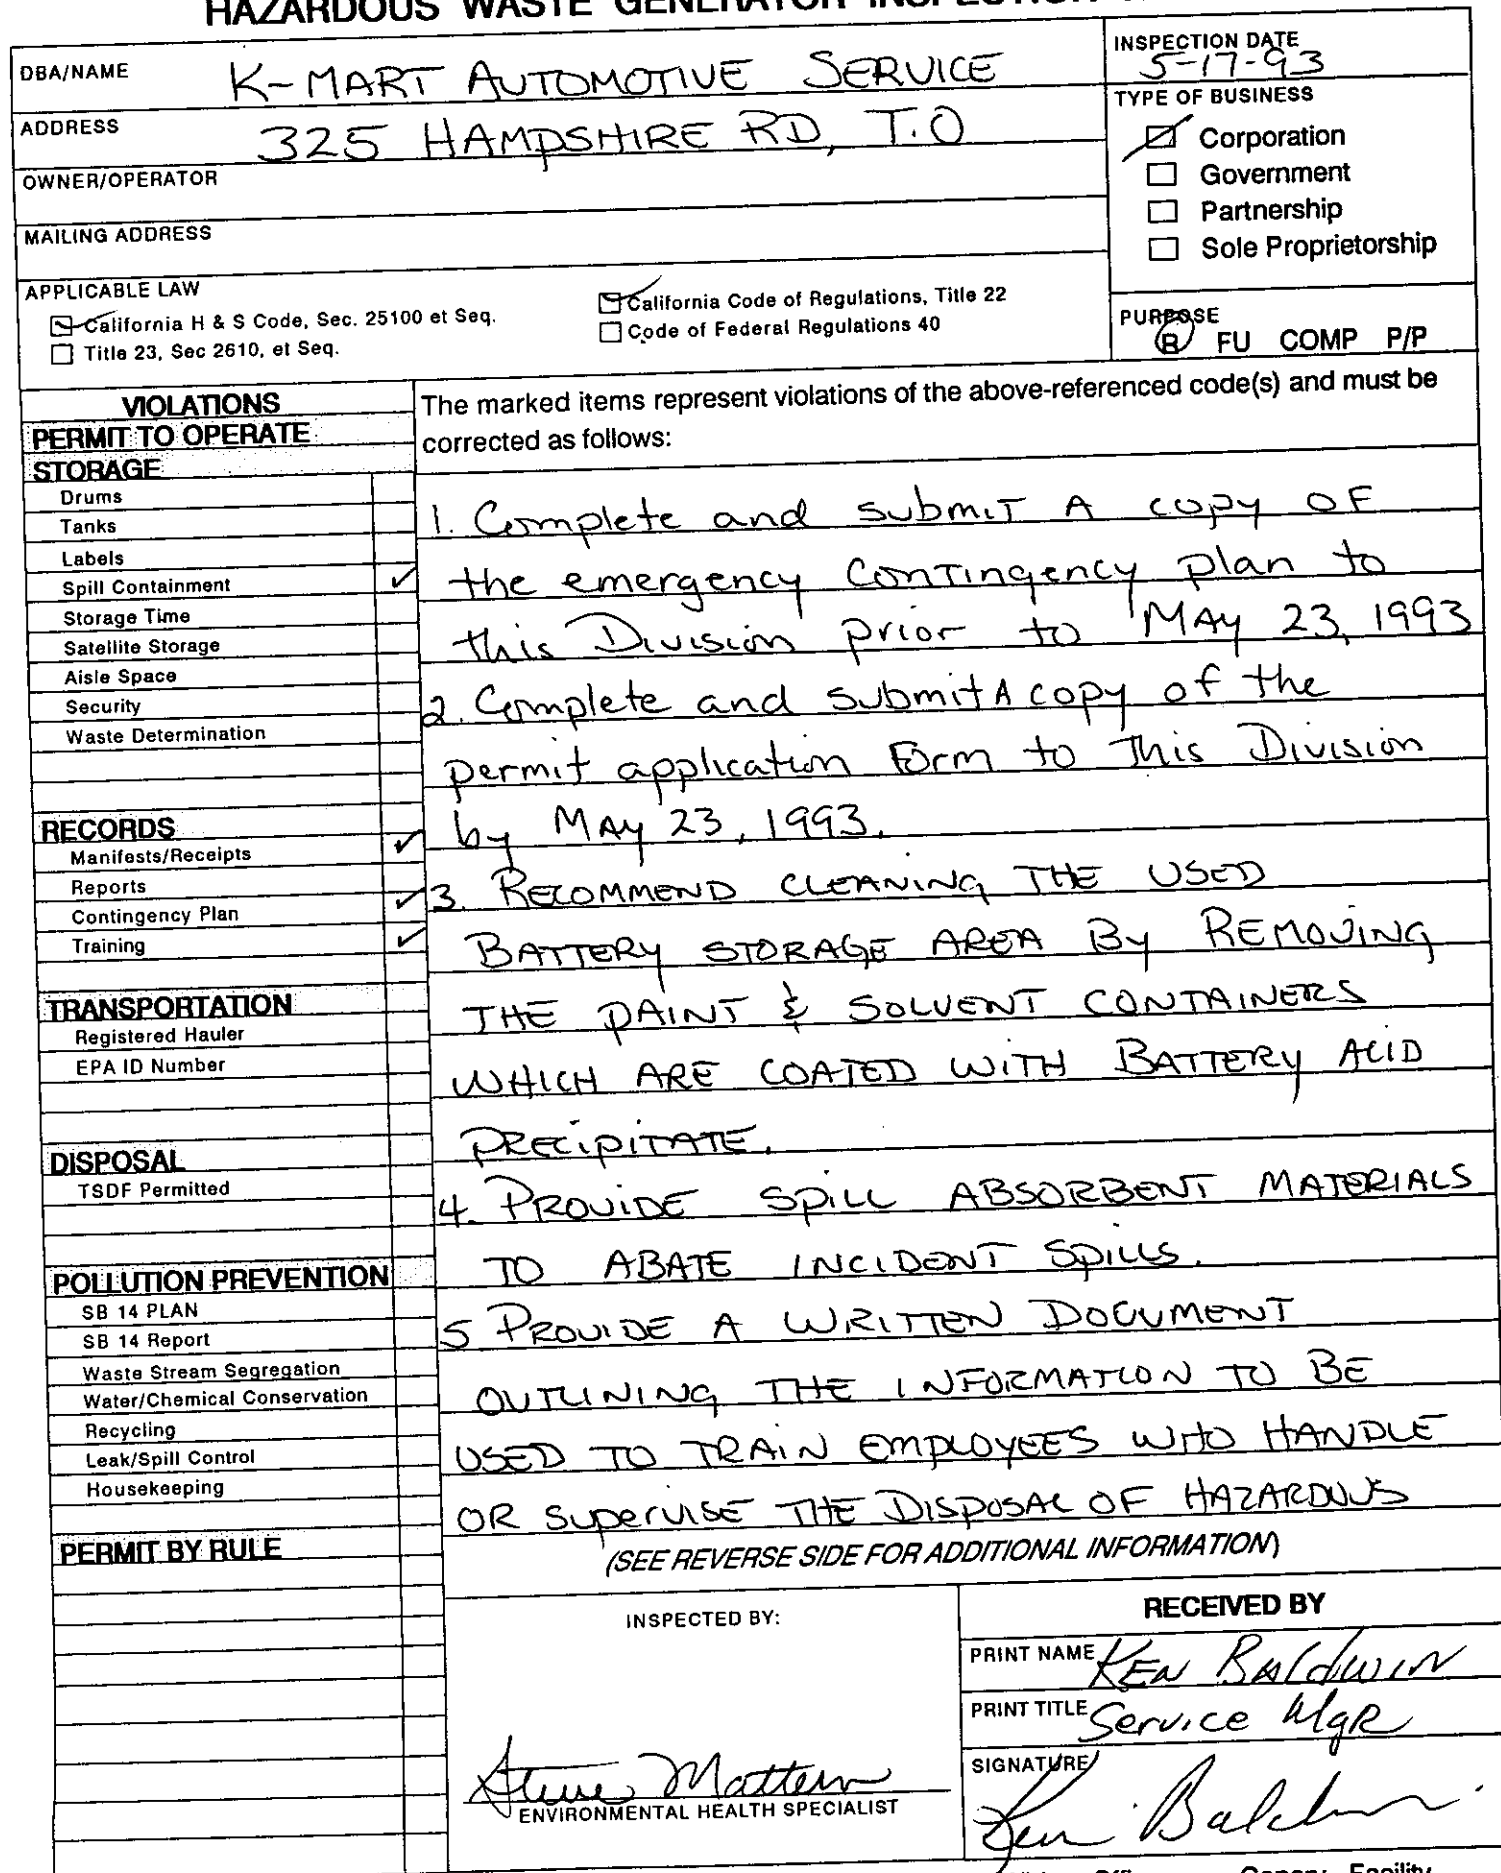 HAZARDOUS WASTE GENERATOR INSPECTION
DBA/NAME K-MART AUTOMOTIVE SERVICE
INSPECTION DATE
5-17-93
ADDRESS 325 HAMPSHIRE RD, T.O
OWNER/OPERATOR
MAILING ADDRESS
TYPE OF BUSINESS
Corporation
Government
Partnership
Sole Proprietorship
APPLICABLE LAW
California H & S Code, Sec. 25100 et Seq.
Title 23, Sec 2610, et Seq.
California Code of Regulations, Title 22
Code of Federal Regulations 40
PURPOSE
R FU COMP P/P
VIOLATIONS
PERMIT TO OPERATE
STORAGE
Drums
Tanks
Labels
Spill Containment ✓
Storage Time
Satellite Storage
Aisle Space
Security
Waste Determination
RECORDS
Manifests/Receipts ✓
Reports
Contingency Plan ✓
Training ✓
TRANSPORTATION
Registered Hauler
EPA ID Number
DISPOSAL
TSDF Permitted
POLLUTION PREVENTION
SB 14 PLAN
SB 14 Report
Waste Stream Segregation
Water/Chemical Conservation
Recycling
Leak/Spill Control
Housekeeping
PERMIT BY RULE
The marked items represent violations of the above-referenced code(s) and must be
corrected as follows:
1. Complete and submit A copy OF
the emergency Contingency plan to
this Division prior to MAY 23, 1993
2. Complete and submit A copy of the
permit application Form to This Division
by MAY 23, 1993.
3. RECOMMEND CLEANING THE USED
BATTERY STORAGE AREA By REMOVING
THE PAINT & SOLVENT CONTAINERS
WHICH ARE COATED WITH BATTERY ACID
PRECIPITATE.
4. PROVIDE SPILL ABSORBENT MATERIALS
TO ABATE INCIDENT SPILLS.
5 PROVIDE A WRITTEN DOCUMENT
OUTLINING THE INFORMATION TO BE
USED TO TRAIN EMPLOYEES WHO HANDLE
OR SUPERVISE THE DISPOSAL OF HAZARDOUS
(SEE REVERSE SIDE FOR ADDITIONAL INFORMATION)
INSPECTED BY:
Steve Mattern
ENVIRONMENTAL HEALTH SPECIALIST
RECEIVED BY
PRINT NAME KEN BAldwIN
PRINT TITLE Service MgR
SIGNATURE
Ken Baldwin